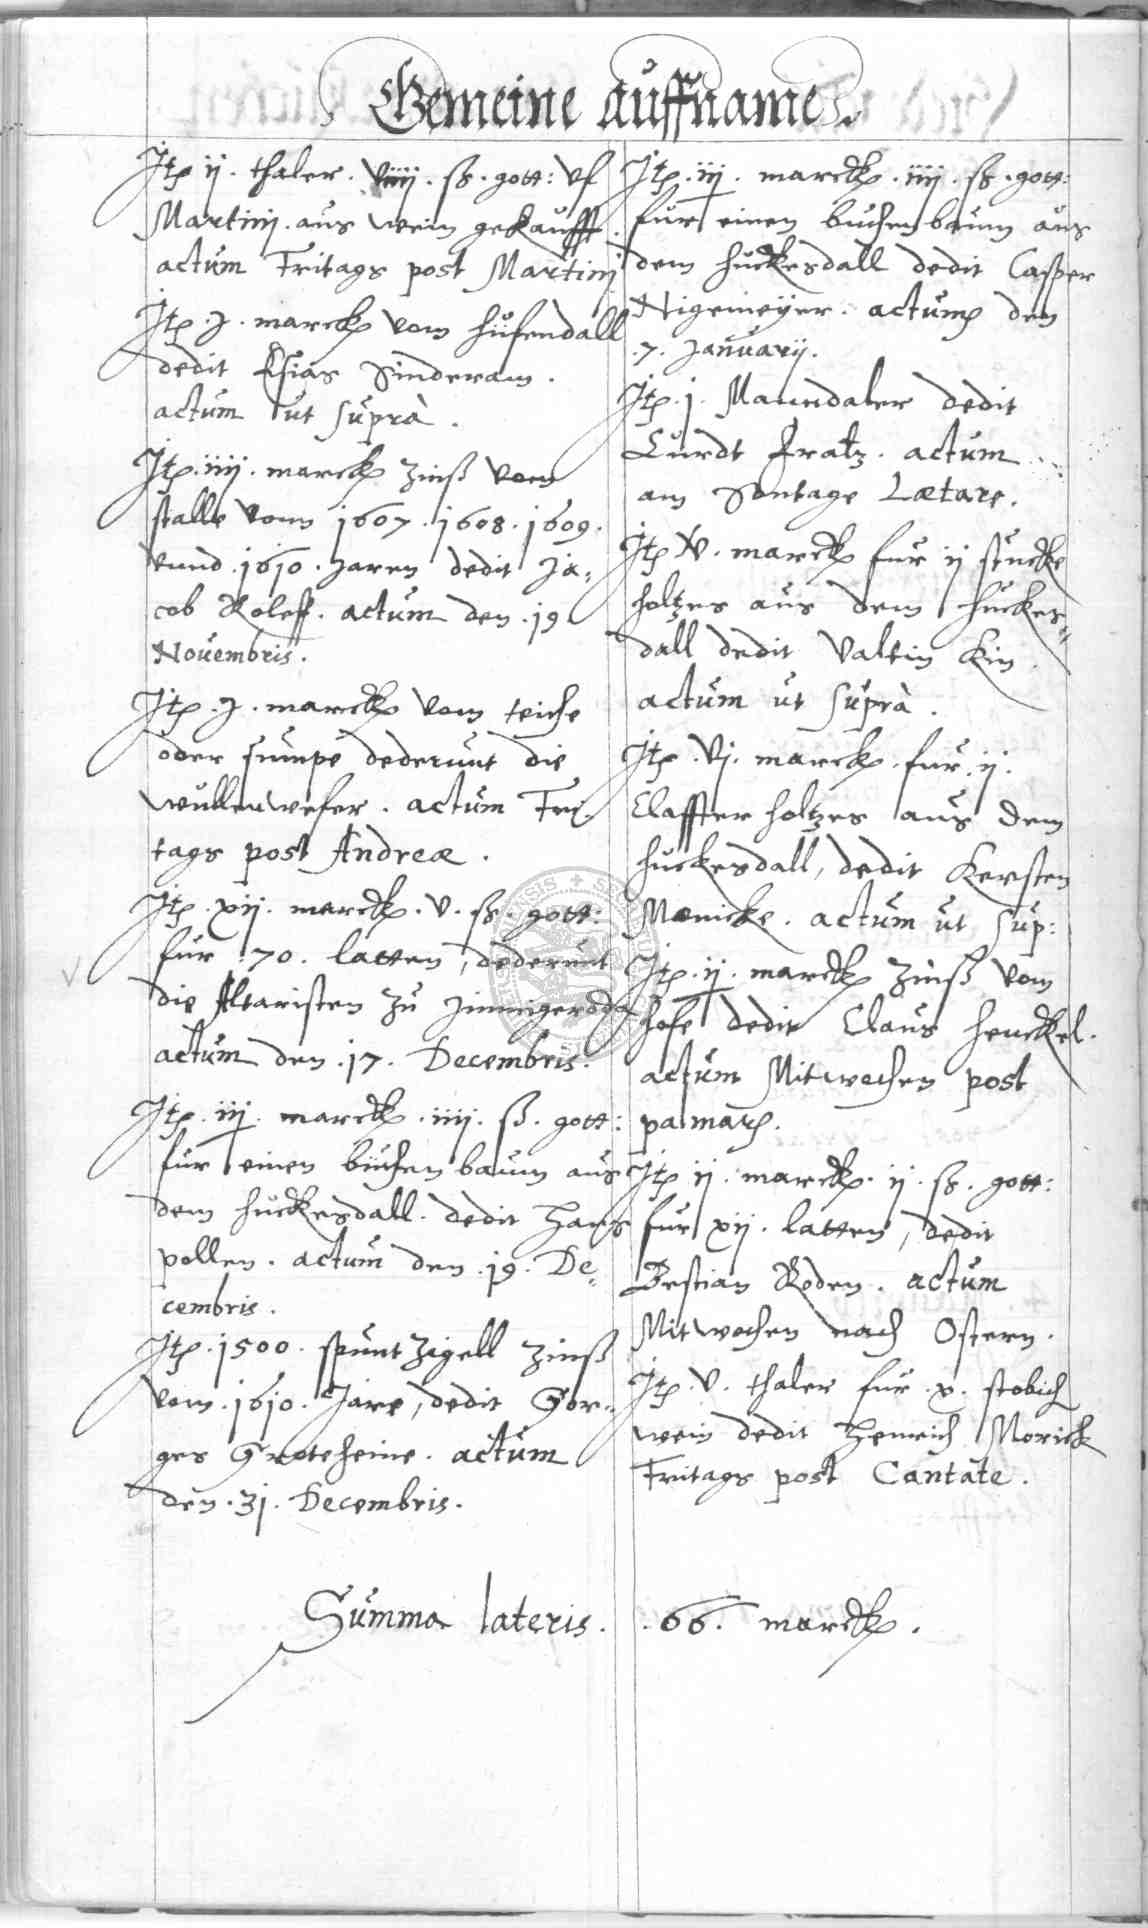 Gemeine auffname
Itp ij. thaler. viiij. ß. gott: vf
Martinj. aus wein gekaufft.
actum Fritags post Martinj
Itp. j. marck vom hüfendall
dedit Esias Sinderam.
actum ut suprà.
Itp. iiij. marck zinß vom
stalle vom 1607. 1608. 1609.
vnnd .1610. Jaren dedit Ja„
cob Roleff. actum den .19
Nouembris.
Itp. j. marck vom teiche
oder sumpe dederunt die
wullenwefer. actum Fri.
tags post Andreæ.
Itp. xij. marck. v. ß. gott:
fur .70. latten, dederunt
die Altaristen zu
actum den .17. Decembris.
Itp. iij. marck. iiij. ß. gott:
fur einen büchenbaum aus
dem huckesdall. dedit Hans
pollen. actum den .19. De„
cembris.
Itp. 1500. spuntzigell zinß
vom .1610. Jare, dedit Gor„
ges Groteheine. actum
den .31. Decembris.
Itp. iij. marck. iiij. ß. gott:
fur einen buchenbaum aus
dem huckesdall dedit Casper
Nigemeyer. actum den
.7. Januarij.
Itp. j. Maundaler dedit
Curdt Fratz. actum
am Sontage Lætare.
Itp. v. marck fur ij stucke
holtzes aus dem huckes„
dall dedit Valtin Kin.
actum ut suprà.
Itp. vj. marck. fur ij.
Claffter holtzes aus dem
huckesdall, dedit Kersten
Mænicke. actum ut sup:
Itp. ij. marck zinß vom
hofe dedit Claus Henckel.
actum Mitwochen post
palmarū.
Itp ij. marck. ij. ß. gott:
fur xij. latten, dedit
Bestian Roden. actum
Mitwochen nach Ostern.
Itp. v. thaler fur .x. stobich
wein dedit Henrich Morick
Fritags post Cantate.
Summa lateris. .66. marck.